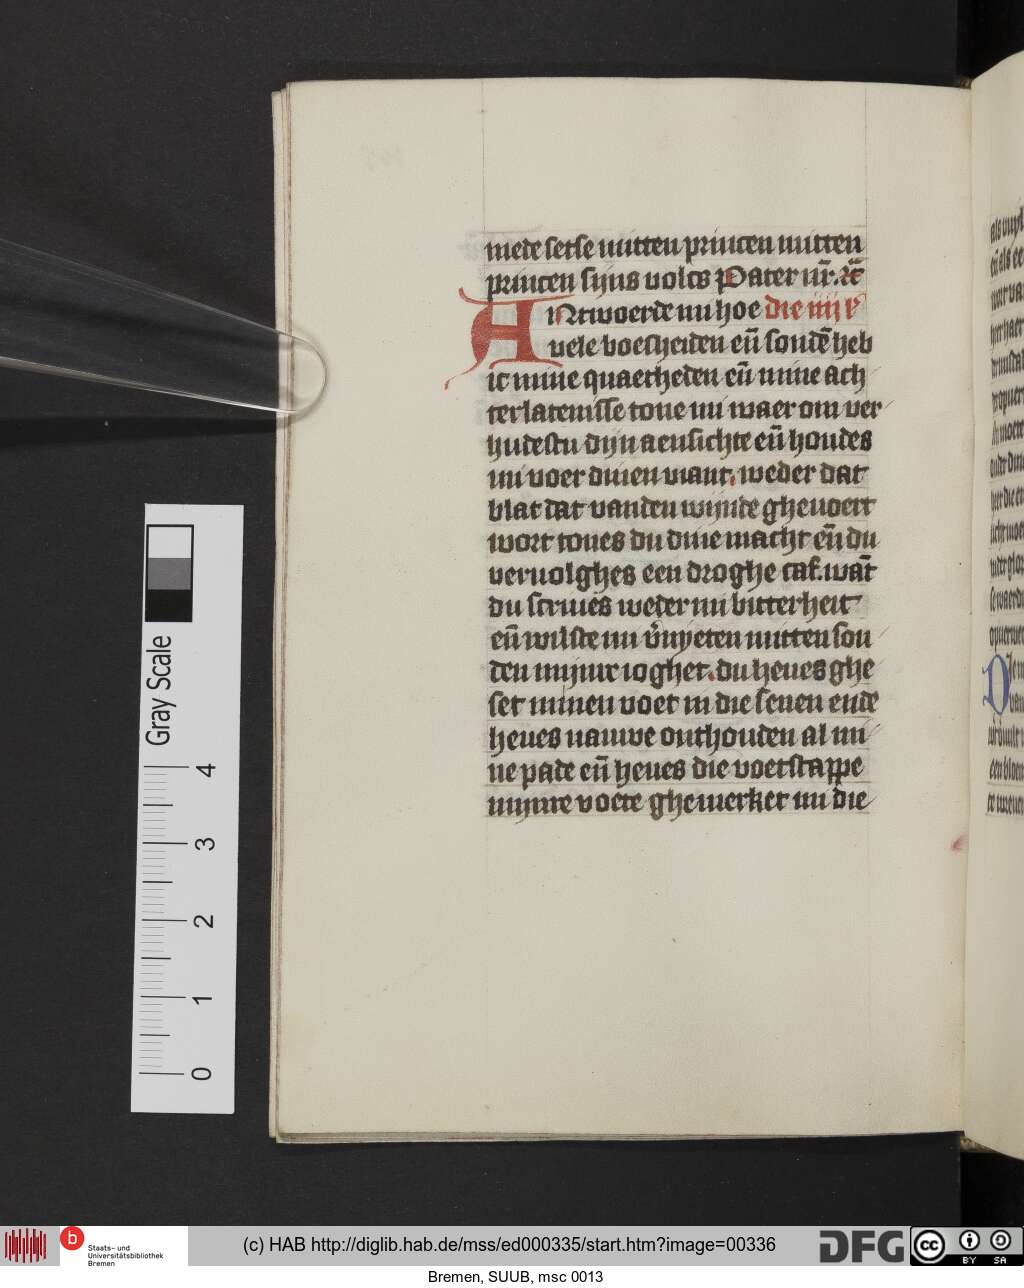 mede setse mitten princen mitten
princen sijns volcs Pater nr̄. ⁊c̄
ANtwoerde mi hoe die iiij
vele boescheiden en̄ sondē heb
ic mine quaetheden en̄ mine ach
terlatenisse tone mi waer om ver
hudestu dijn aensichte en̄ houdes
mi voer dinen viant. weder dat
blat dat vanden wijnde ghevoert
wort tones du dine macht en̄ du
vervolghes een droghe caf. wāt
du scrives weder mi bitterheit
en̄ wilste mi v̄nyeten mitten son
den mijnre ioghet. du heves ghe
set minen voet in die senen ende
heves nauwe onthouden al mi
ne pade en̄ heves die voetstappe
mijnre voete ghemerket mi die
Gray Scale
4
3
2
1
0
b
Staats- und
Universitätsbibliothek
Bremen
(c) HAB http://diglib.hab.de/mss/ed000335/start.htm?image=00336
DFG
cc
BY SA
Bremen, SUUB, msc 0013